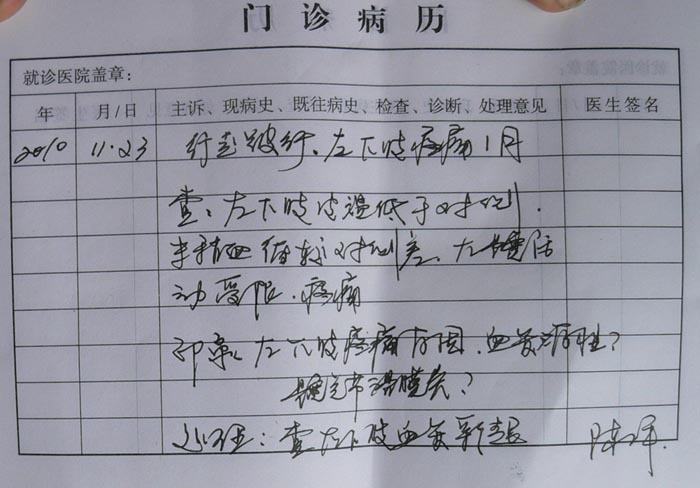 门诊病历
就诊医院盖章：
年 月/日 主诉、现病史、既往病史、检查、诊断、处理意见 医生签名
2010 11.23 行走跛行、左下肢疼痛1月
查：左下肢皮温低于对侧.
末梢血循较对侧差、左踝活
动受限.疼痛
印象：左下肢疼痛 血管源性？
踝关节滑膜炎？
处理：查左下肢血管彩超